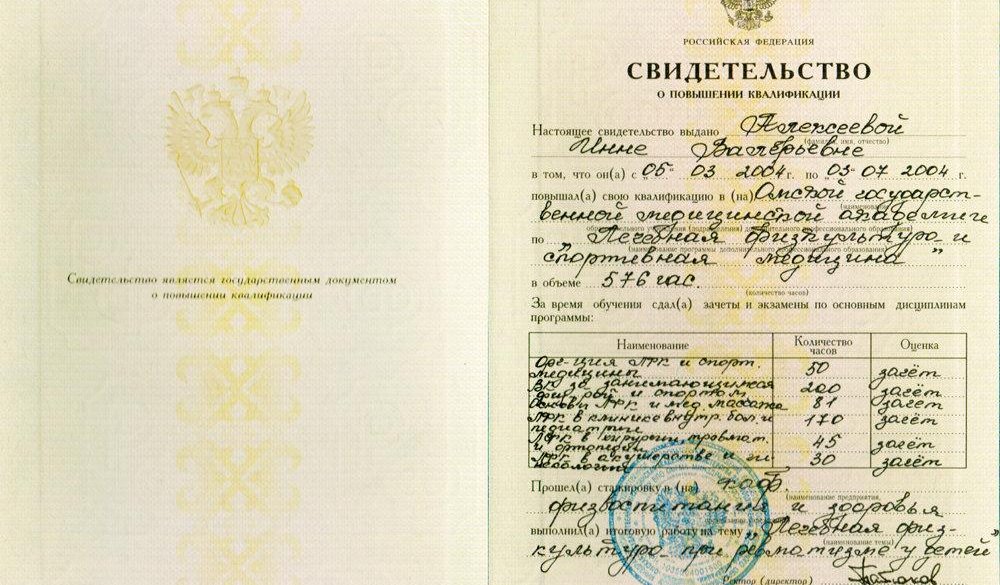 Свидетельство является государственным документом
о повышении квалификации
РОССИЙСКАЯ ФЕДЕРАЦИЯ
СВИДЕТЕЛЬСТВО
О ПОВЫШЕНИИ КВАЛИФИКАЦИИ
Настоящее свидетельство выдано Алексеевой
(фамилия, имя, отчество)
Инне Валерьевне
в том, что он(а) с „05“ 03 2004 г. по „03“ 07 2004 г.
повышал(а) свою квалификацию в (на) Омской государст-
(наименование
венной медицинской академии
образовательного учреждения (подразделения) дополнительного профессионального образования)
по „Лечебная физкультура и
(наименование программы дополнительного профессионального образования)
спортивная медицина“
в объеме 576 час.
(количество часов)
За время обучения сдал(а) зачеты и экзамены по основным дисциплинам
программы:
Наименование Количество часов Оценка
Орг-ция ЛФК и спорт. медицины 50 зачёт
ВК за занимающимися физ-рой и спортом 200 зачёт
Основы ЛФК и мед. массажа 81 зачёт
ЛФК в клинике внутр. бол. и педиатрии 170 зачёт
ЛФК в хирургии, травмат. и ортопедии 45 зачёт
ЛФК в акушерстве и гинекологии 30 зачёт
Прошел(а) стажировку в (на) каф.
(наименование предприятия,
физвоспитания и здоровья
выполнил(а) итоговую работу на тему „Лечебная физ-
(наименование темы)
культура при ревматизме у детей“
Ректор (директор)